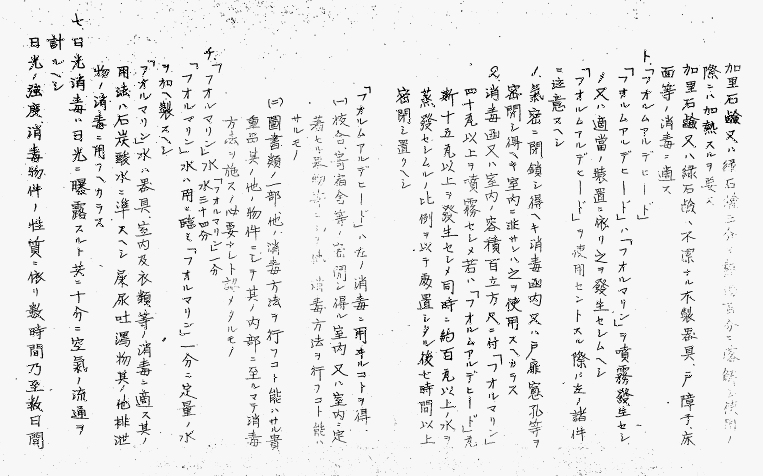 加里石鹼又ハ緑石鹼
際ニハ加熱スルヲ要ス
加里石鹼又ハ緑石鹼ハ不潔ナル木製器具、戸障子、床
面等ノ消毒ニ適ス
ト、「フオルムアルデヒード」
「フオルムアルデヒード」ハ「フオルマリン」ヲ噴霧發生セシ
メ又ハ適當ノ裝置ニ依リ之ヲ發生セシムヘシ
「フオルムアルデヒード」ヲ使用セントスル際ハ左ノ諸件
ニ注意スヘシ
1、氣密ニ閉鎖シ得ヘキ消毒凾内又ハ戸扉窓孔等ヲ
密閉シ得ヘキ室内ニ非サレハ之ヲ使用スヘカラス
2、消毒凾又ハ室内ノ容積百立方尺ニ付「フオルマリン」
四十瓦以上ヲ噴霧セシメ若ハ「フオルムアルデヒード」瓦
斯十五瓦以上ヲ發生セシメ同時ニ約百瓦以上ノ水ヲ
蒸發セシムルノ比例ヲ以テ處置シタル後七時間以上
密閉シ置クヘシ
「フオルムアルデヒード」ハ左ノ消毒ニ用ヰルコトヲ得
(一)校舍寄宿舍等ノ密閉シ得ル室内又ハ室内ニ定
消毒方法ヲ行フコト能ハ
サルモノ
(二)圖書類ノ一部他ノ消毒方法ヲ行フコト能ハサル貴
重器具ノ他ノ物件ニシテ其ノ内部ニ至ルマテ消毒
方法ヲ施スノ必要ナシト認メタルモノ
チ、「フオルマリン」水 「フオルマリン」一分 水三十四分
「フオルマリン」水ハ用ニ臨ミ「フオルマリン」一分ニ定量ノ水
ヲ加ヘ製スヘシ
「フオルマリン」水ハ器具、室内及衣類等ノ消毒ニ適ス其ノ
用法ハ石炭酸水ニ準スヘシ 屎尿吐瀉物其ノ他排泄
物ノ消毒ニ用フヘカラス
七、日光消毒ハ日光ニ曝露スルト共ニ十分ニ空氣ノ流通ヲ
計ルヘシ
日光ノ強度消毒物件ノ性質ニ依リ數時間乃至數日間